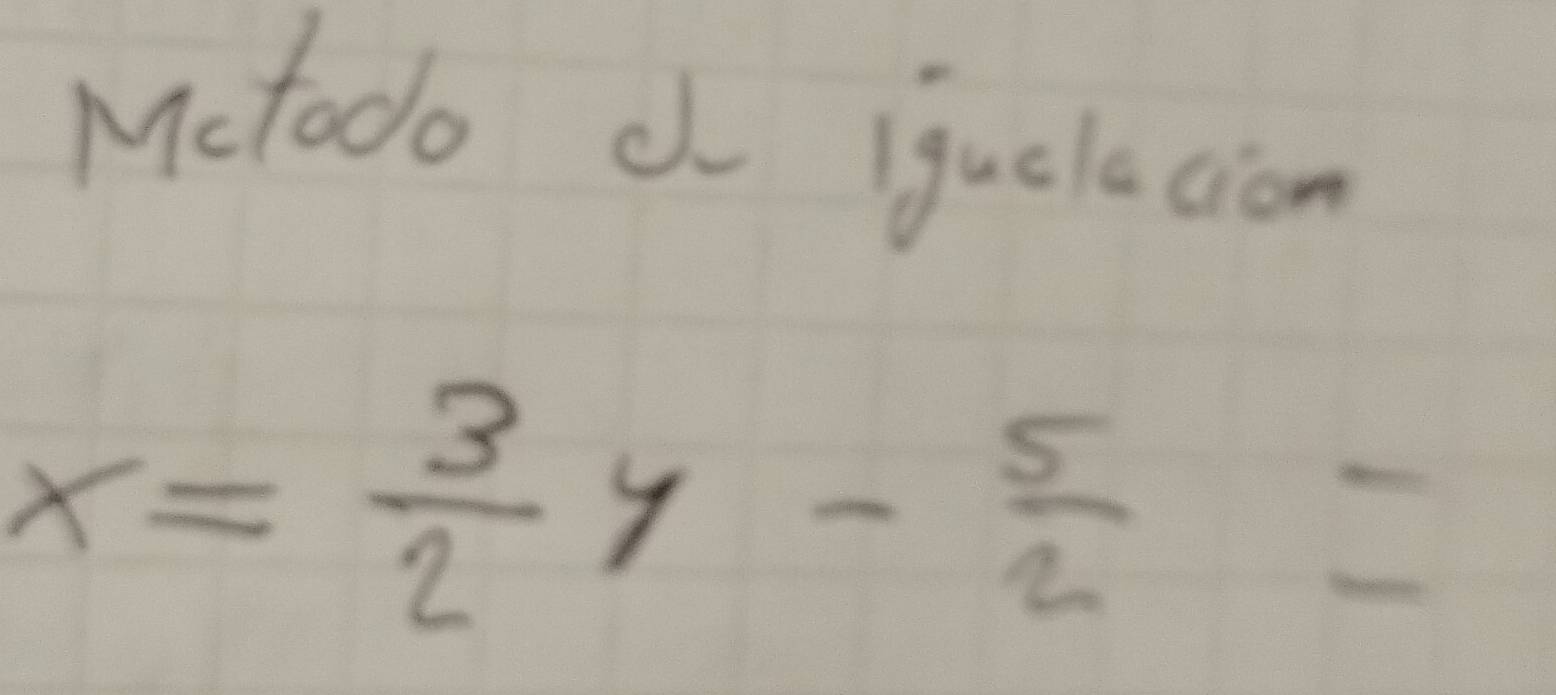 Metodo de igualacion
x = 3/2 y - 5/2 =